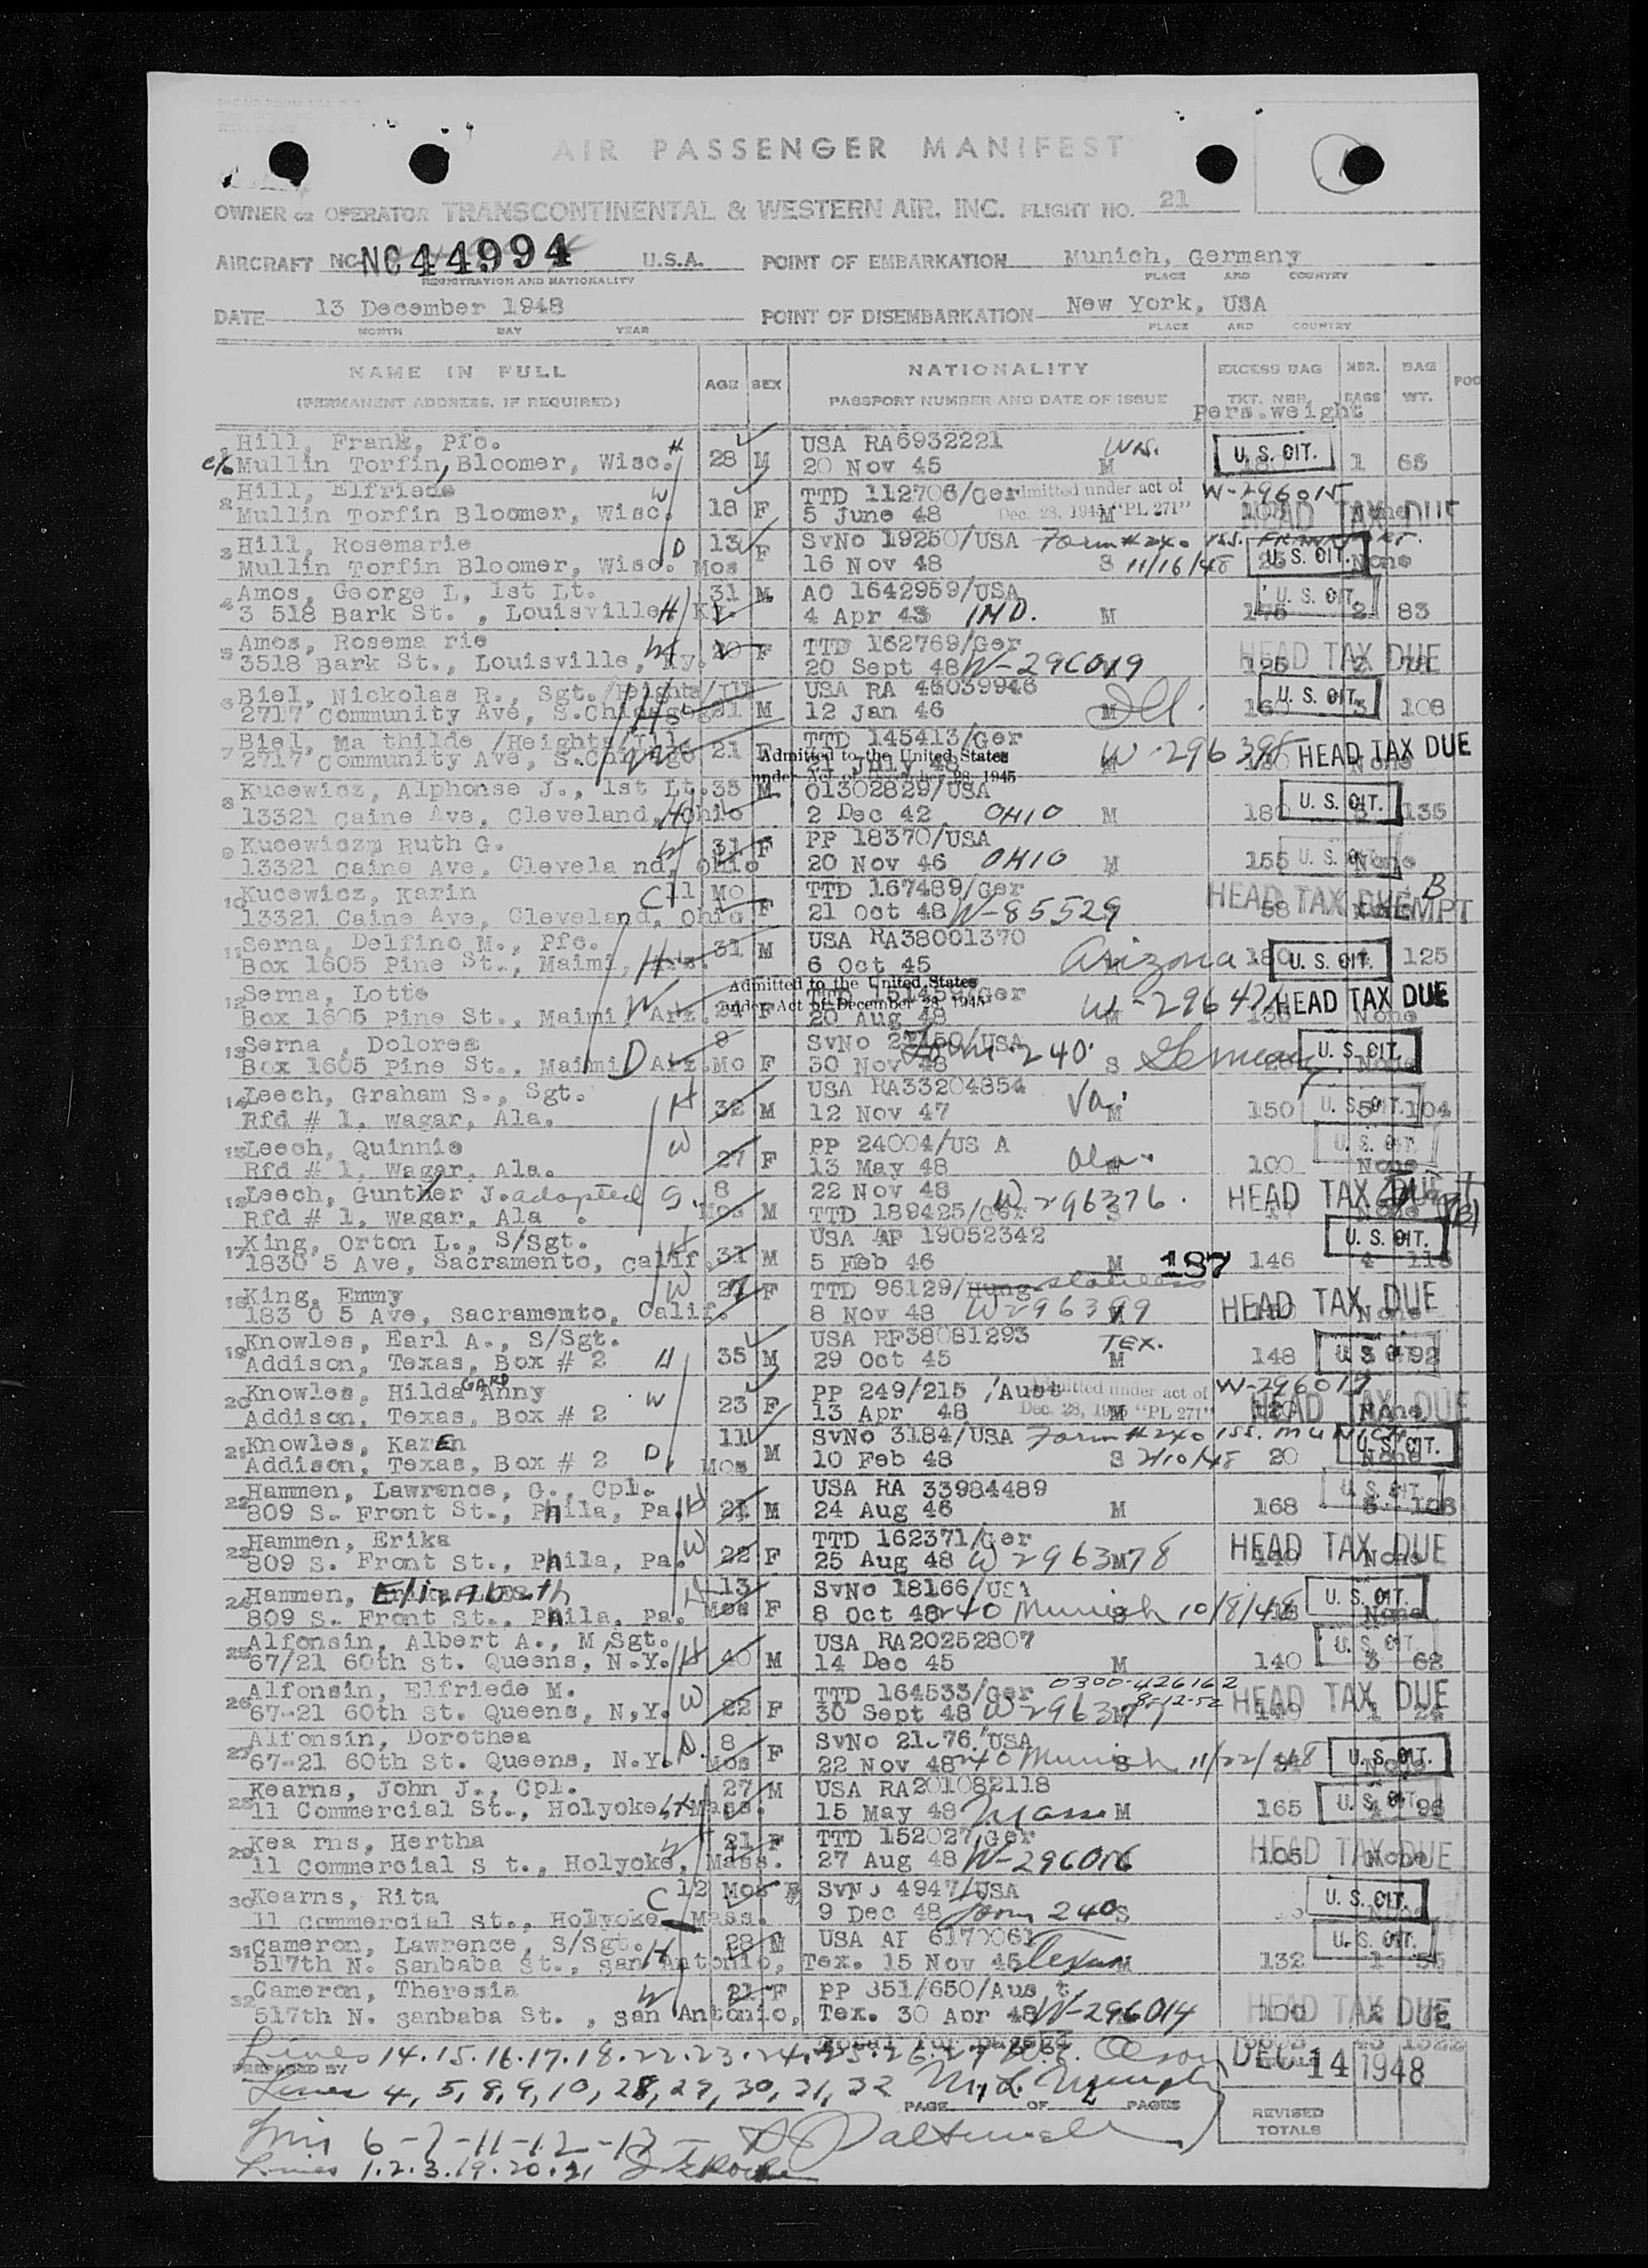 AIR PASSENGER MANIFEST
OWNER OR OPERATOR TRANSCONTINENTAL & WESTERN AIR. INC. FLIGHT NO. 21
AIRCRAFT NC NC44994 U.S.A. POINT OF EMBARKATION Munich, Germany
REGISTRATION AND NATIONALITY PLACE AND COUNTRY
DATE 13 December 1948 POINT OF DISEMBARKATION New York, USA
MONTH DAY YEAR PLACE AND COUNTRY
NAME IN FULL AGE SEX NATIONALITY EXCESS BAG NBR. BAG POC
(PERMANENT ADDRESS, IF REQUIRED) PASSPORT NUMBER AND DATE OF ISSUE TKT. NBR. BAGS WT.
Pers.weight
Hill, Frank, Pfc. H 28 M USA RA6932221 Wis. U.S.CIT.
c/o Mullin Torfin, Bloomer, Wisc. 20 Nov 45 M 1 65
2 Hill, Elfriede W 18 F TTD 112706/Ger Admitted under act of W-296015
Mullin Torfin Bloomer, Wisc. 5 June 48 Dec. 28, 1945 "PL 271" M HEAD TAX DUE
3 Hill, Rosemarie D 13 F SvNo 19250/USA Form #240 iss. FRANKFURT.
Mullin Torfin Bloomer, Wisc. Mos 16 Nov 48 S 11/16/48 U.S.CIT. None
4 Amos, George L, 1st Lt. 31 M AO 1642959/USA U.S.CIT.
3 518 Bark St. , Louisville H Ky. 4 Apr 43 IND. M 175 2 83
5 Amos, Rosema rie W 20 F TTD 162769/Ger HEAD TAX DUE
3518 Bark St., Louisville, Ky. 20 Sept 48 W-296019 125
6 Biel, Nickolas R., Sgt./Heights/Ill USA RA 46039946 U.S.CIT.
2717 Community Ave, S.Chicago H 31 M 12 Jan 46 M Ill. 160 3 108
7 Biel, Ma thilde /Heights/Ill. 21 F TTD 145413/Ger W-296398 HEAD TAX DUE
2717 Community Ave, S.Chicago Admitted to the United States under Act of December 28, 1945 21 July 48 M None
8 Kucewicz, Alphonse J., 1st Lt. 35 M 01302829/USA U.S.CIT.
13321 Caine Ave, Cleveland, H Ohio 2 Dec 42 OHIO M 180 135
9 Kucewiczm Ruth G. W 31 F PP 18370/USA
13321 Caine Ave, Clevela nd, Ohio 20 Nov 46 OHIO M 155 U.S.CIT. None
10 Kucewicz, Karin C 11 Mo F TTD 167489/Ger HEAD TAX DUE EXEMPT B
13321 Caine Ave, Cleveland, Ohio 21 Oct 48 W-85529
11 Serna, Delfino M., Pfc. 31 M USA RA38001370
Box 1605 Pine St., Maimi, Ariz. H 6 Oct 45 Arizona 180 U.S.CIT. 125
12 Serna, Lotte W 24 F TTD 151459/Ger Admitted to the United States under Act of December 28, 1945
Box 1605 Pine St., Maimi, Ariz. 20 Aug 48 HEAD TAX DUE None
13 Serna , Dolores 9 SvNo /USA Form 240 U.S.CIT.
Box 1605 Pine St., Maimi D Ariz. Mo F 30 Nov 48 S Germany None
14 Leech, Graham S., Sgt. H 32 M USA RA33204854 Va. U.S.CIT.
Rfd # 1, Wagar, Ala. 12 Nov 47 M 150 5 104
15 Leech, Quinnie W 27 F PP 24004/US A U.S.CIT.
Rfd # 1, Wagar, Ala. 13 May 48 Ala. 100 None
16 Leech, Gunther J. adopted S. 8 22 Nov 48 W296376. HEAD TAX DUE
Rfd # 1, Wagar, Ala . Mos M TTD 189425/Ger S None (B)
17 King, Orton L., S/Sgt. H 31 M USA AF 19052342 U.S.CIT.
1830 5 Ave, Sacramento, Calif. 5 Feb 46 M 187 146 4
18 King, Emmy W 27 F TTD 96129/Hung stateless
183 0 5 Ave, Sacramemto, Calif. 8 Nov 48 W296399 HEAD TAX DUE None
19 Knowles, Earl A., S/Sgt. USA RF38081293 TEX.
Addison, Texas, Box # 2 H 35 M 29 Oct 45 M 148 U.S.CIT. 3 92
20 Knowles, Hilda GARD Anny W 23 F PP 249/215 /Aust Admitted under act of W-296017
Addison, Texas, Box # 2 13 Apr 48 Dec. 28, 1945 "PL 271" M HEAD TAX DUE None
21 Knowles, KarEn D 11 M SvNo 3184/USA Form #240 iss. MUNICH
Addison, Texas, Box # 2 Mos 10 Feb 48 S 2/10/48 20 U.S.CIT. None
22 Hammen, Lawrence, G., Cpl. H USA RA 33984489 U.S.CIT.
809 S. Front St., Phila, Pa. 21 M 24 Aug 46 M 168 5 108
23 Hammen, Erika W 22 F TTD 162371/Ger HEAD TAX DUE
809 S. Front St., Phila, Pa. 25 Aug 48 W296378 M None
24 Hammen, Elizabeth D 13 F SvNo 18166/USA U.S.CIT.
809 S. Front St., Phila, Pa. Mos 8 Oct 48 240 Munich 10/8/48 None
25 Alfonsin, Albert A., M,Sgt. H 40 M USA RA20252807 U.S.CIT.
67/21 60th St. Queens, N.Y. 14 Dec 45 M 140 3 62
26 Alfonsin, Elfriede M. W 22 F TTD 164533/Ger 0300-426162
67-21 60th St. Queens, N,Y. 30 Sept 48 W296377 8-12-52 HEAD TAX DUE 1 24
27 Alfonsin, Dorothea D. 8 F SvNo /USA
67-21 60th St. Queens, N.Y. Mos 22 Nov 48 240 Munich 11/22/48 U.S.CIT. None
28 Kearns, John J., Cpl. 27 M USA RA201082118 U.S.CIT.
11 Commercial St., Holyoke, H Mass. 15 May 48 Mass M 165 4 96
29 Kea rns, Hertha W 21 F TTD 152027/Ger HEAD TAX DUE
11 Commercial S t., Holyoke, Mass. 27 Aug 48 W-296016 105 None
30 Kearns, Rita C 12 Mos F SvNo 4947/USA U.S.CIT.
11 Commercial st., Holyoke Mass. 9 Dec 48 Form 240 S
31 Cameron, Lawrence, S/Sgt. H 28 M USA AF 6170061 U.S.CIT.
517th N. Sanbaba St., San Antonio, Tex. 15 Nov 45 Texas M 132 1 55
32 Cameron, Theresia W 21 F PP 351/650/Aus t
517th N. Sanbaba St. , San Antonio, Tex. 30 Apr 48 W-296014 100 HEAD TAX DUE
Total for page
Lines 14.15.16.17.18.22.23.24.25.26.27 Olson
PREPARED BY DEC 14 1948
Lines 4, 5, 8, 9, 10, 28, 29, 30, 31, 32
PAGE OF 2 PAGES
REVISED TOTALS
Lines 6-7-11-12-13-
Lines 1.2.3.19.20.21